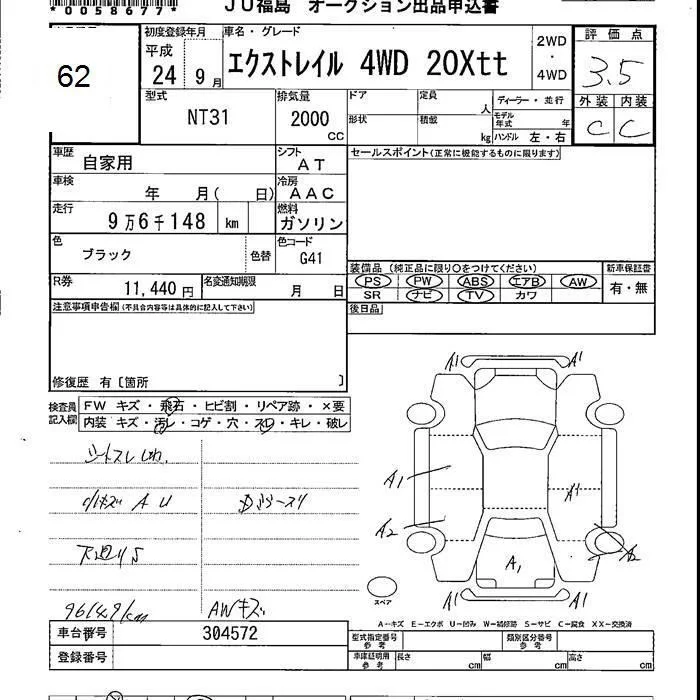 *0058677*
JU福島 オークション出品申込書
62
初度登録年月
平成
24 9月
車名・グレード
エクストレイル 4WD 20Xtt
2WD
・
4WD
評価点
3.5
外装 内装
C C
型式
NT31
排気量
2000
cc
ドア
形状
定員
人
積載
kg
ディーラー・並行
モデル年式 年
ハンドル 左・右
車歴
自家用
シフト
AT
セールスポイント(正常に機能するものに限ります)
車検
年 月( 日)
冷房
AAC
走行
9万6千148 km
燃料
ガソリン
色
ブラック
色替
色コード
G41
装備品 (純正品に限り○をつけてください)
新車保証書
PS PW ABS エアB AW
有・無
SR ナビ TV カワ
R券
11,440円
名変通知期限
月 日
後日品
注意事項申告欄(不具合内容等は具体的に記入して下さい)
修復歴 有〔箇所 〕
検査員記入欄
FW キズ・飛石・ヒビ割・リペア跡・×要
内装 キズ・汚レ・コゲ・穴・スレ・キレ・破レ
シートスレ
小キズ A U
下廻りS
AWキズ
A1 A1
A1
A1
A2
A1
A2
A1 A1
スペア
A-キズ E-エクボ U-凹み W-補修跡 S-サビ C-腐食 XX-交換済
車台番号
304572
登録番号
型式指定番号
参考
類別区分番号
参考
車庫証明用
参考
長さ
cm
幅
cm
高さ
cm